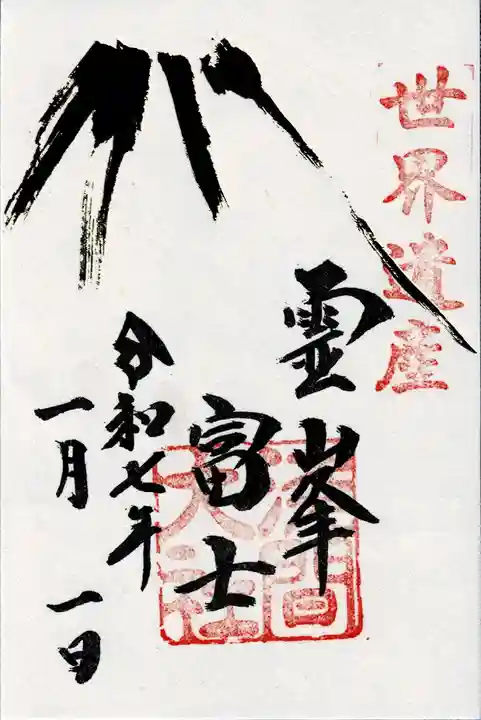 世界遺産
霊峯
富士
浅間
大社
令和七年
一月 一日